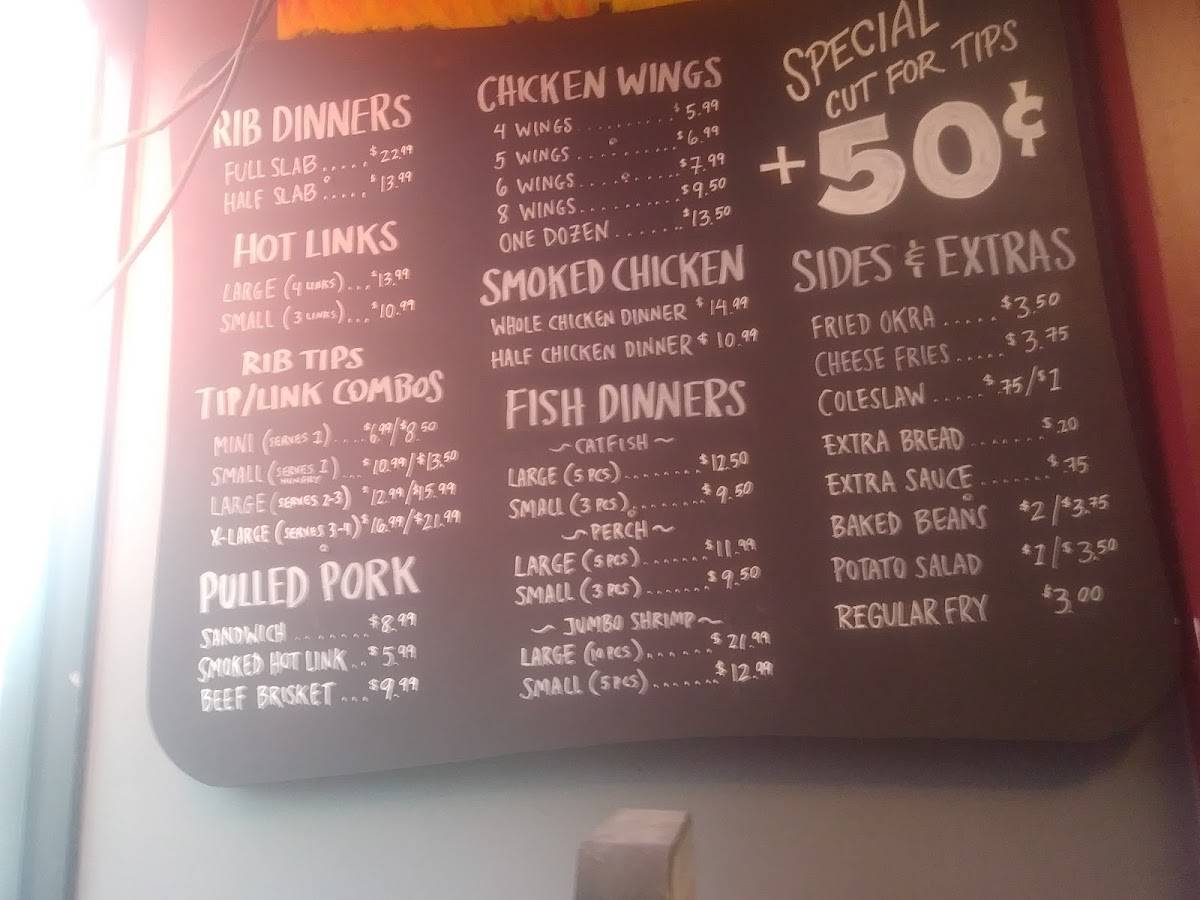 RIB DINNERS
FULL SLAB..... $22.99
HALF SLAB..... $13.99
HOT LINKS
LARGE (4 LINKS)... $13.99
SMALL (3 LINKS)... $10.99
RIB TIPS
TIP/LINK COMBOS
MINI (SERVES 1).... $6.99/$8.50
SMALL (SERVES 1 HUNGRY)... $10.99/$13.50
LARGE (SERVES 2-3) $12.99/$15.99
X-LARGE (SERVES 3-4) $16.99/$21.99
PULLED PORK
SANDWICH........ $8.99
SMOKED HOT LINK.. $5.99
BEEF BRISKET... $9.99
CHICKEN WINGS
4 WINGS.......... $5.99
5 WINGS.......... $6.99
6 WINGS.......... $7.99
8 WINGS.......... $9.50
ONE DOZEN....... $13.50
SMOKED CHICKEN
WHOLE CHICKEN DINNER $14.99
HALF CHICKEN DINNER $10.99
FISH DINNERS
~CATFISH~
LARGE (5 PCS)........ $12.50
SMALL (3 PCS)....... $9.50
~PERCH~
LARGE (5 PCS)....... $11.99
SMALL (3 PCS)....... $9.50
~JUMBO SHRIMP~
LARGE (10 PCS)....... $21.99
SMALL (5 PCS)....... $12.99
SPECIAL
CUT FOR TIPS
+50¢
SIDES & EXTRAS
FRIED OKRA..... $3.50
CHEESE FRIES..... $3.75
COLESLAW..... $.75/$1
EXTRA BREAD....... $.20
EXTRA SAUCE....... $.75
BAKED BEANS $2/$3.75
POTATO SALAD $1/$3.50
REGULAR FRY $3.00